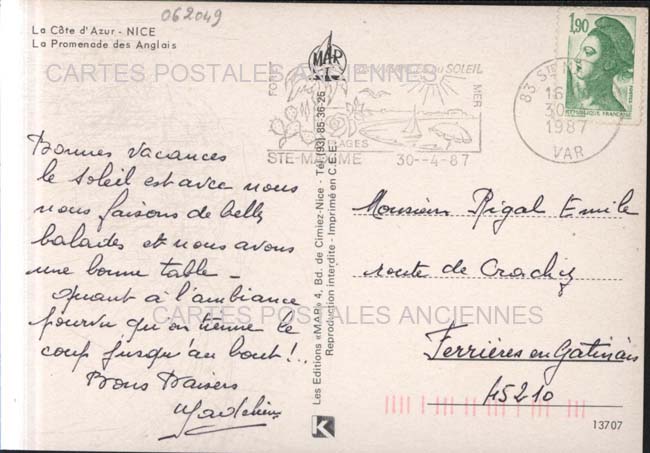 062049
La Côte d'Azur - NICE
La Promenade des Anglais
CARTES POSTALES ANCIENNES
MAP
SOLEIL
FORET
MER
PLAGES
STE-MAXIME 30--4-87
83 STE M
16
30
1987
VAR
1,90
REPUBLIQUE FRANÇAISE
Bonnes Vacances
le Soleil est avec nous
nous faisons de belles
balades et nous avons
une bonne table -
quant à l'ambiance
pourvu qu'on tienne le
coup jusqu'au bout !..
Bons Baisers
Les Editions «MAP» 4, Bd. de Cimiez-Nice - Tél (93) 85-36-26
Reproduction interdite - Imprimé en C.E.E.
K
Monsieur Rigal Emile
route de
CARTES POSTALES ANCIENNES
Ferrières en Gatinais
45210
13707